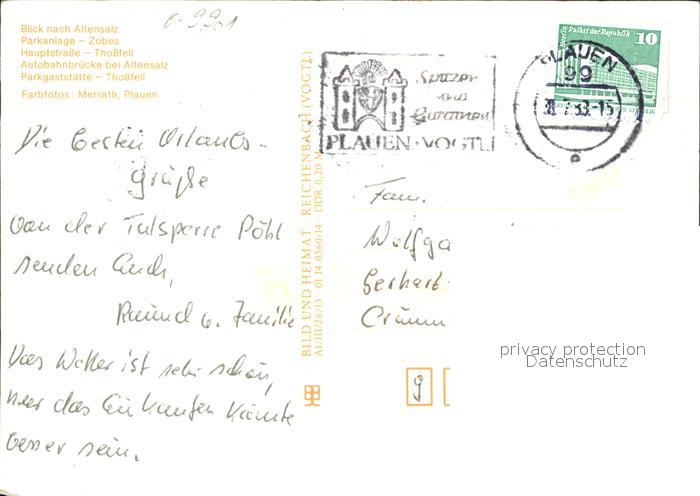 Blick nach Altensalz
Parkanlage – Zobes
Hauptstraße – Thoßfell
Autobahnbrücke bei Altensalz
Parkgaststätte – Thoßfell
Farbfotos: Merrath, Plauen
Die besten Urlaubs-
grüße
von der Talsperre Pöhl
senden Euch,
u. Familie
Das Wetter ist sehr schön,
nur das Einkaufen könnte
besser sein.
BILD UND HEIMAT REICHENBACH (VOGTL)
A1/III/26/13 01 14 0560/14 DDR 0,20 M
Spitzen
und
Gardinen
PLAUEN · VOGTL
PLAUEN
99
Palast der Republik
10
Fam.
Wolfga
Gerhart
9
privacy protection
Datenschutz